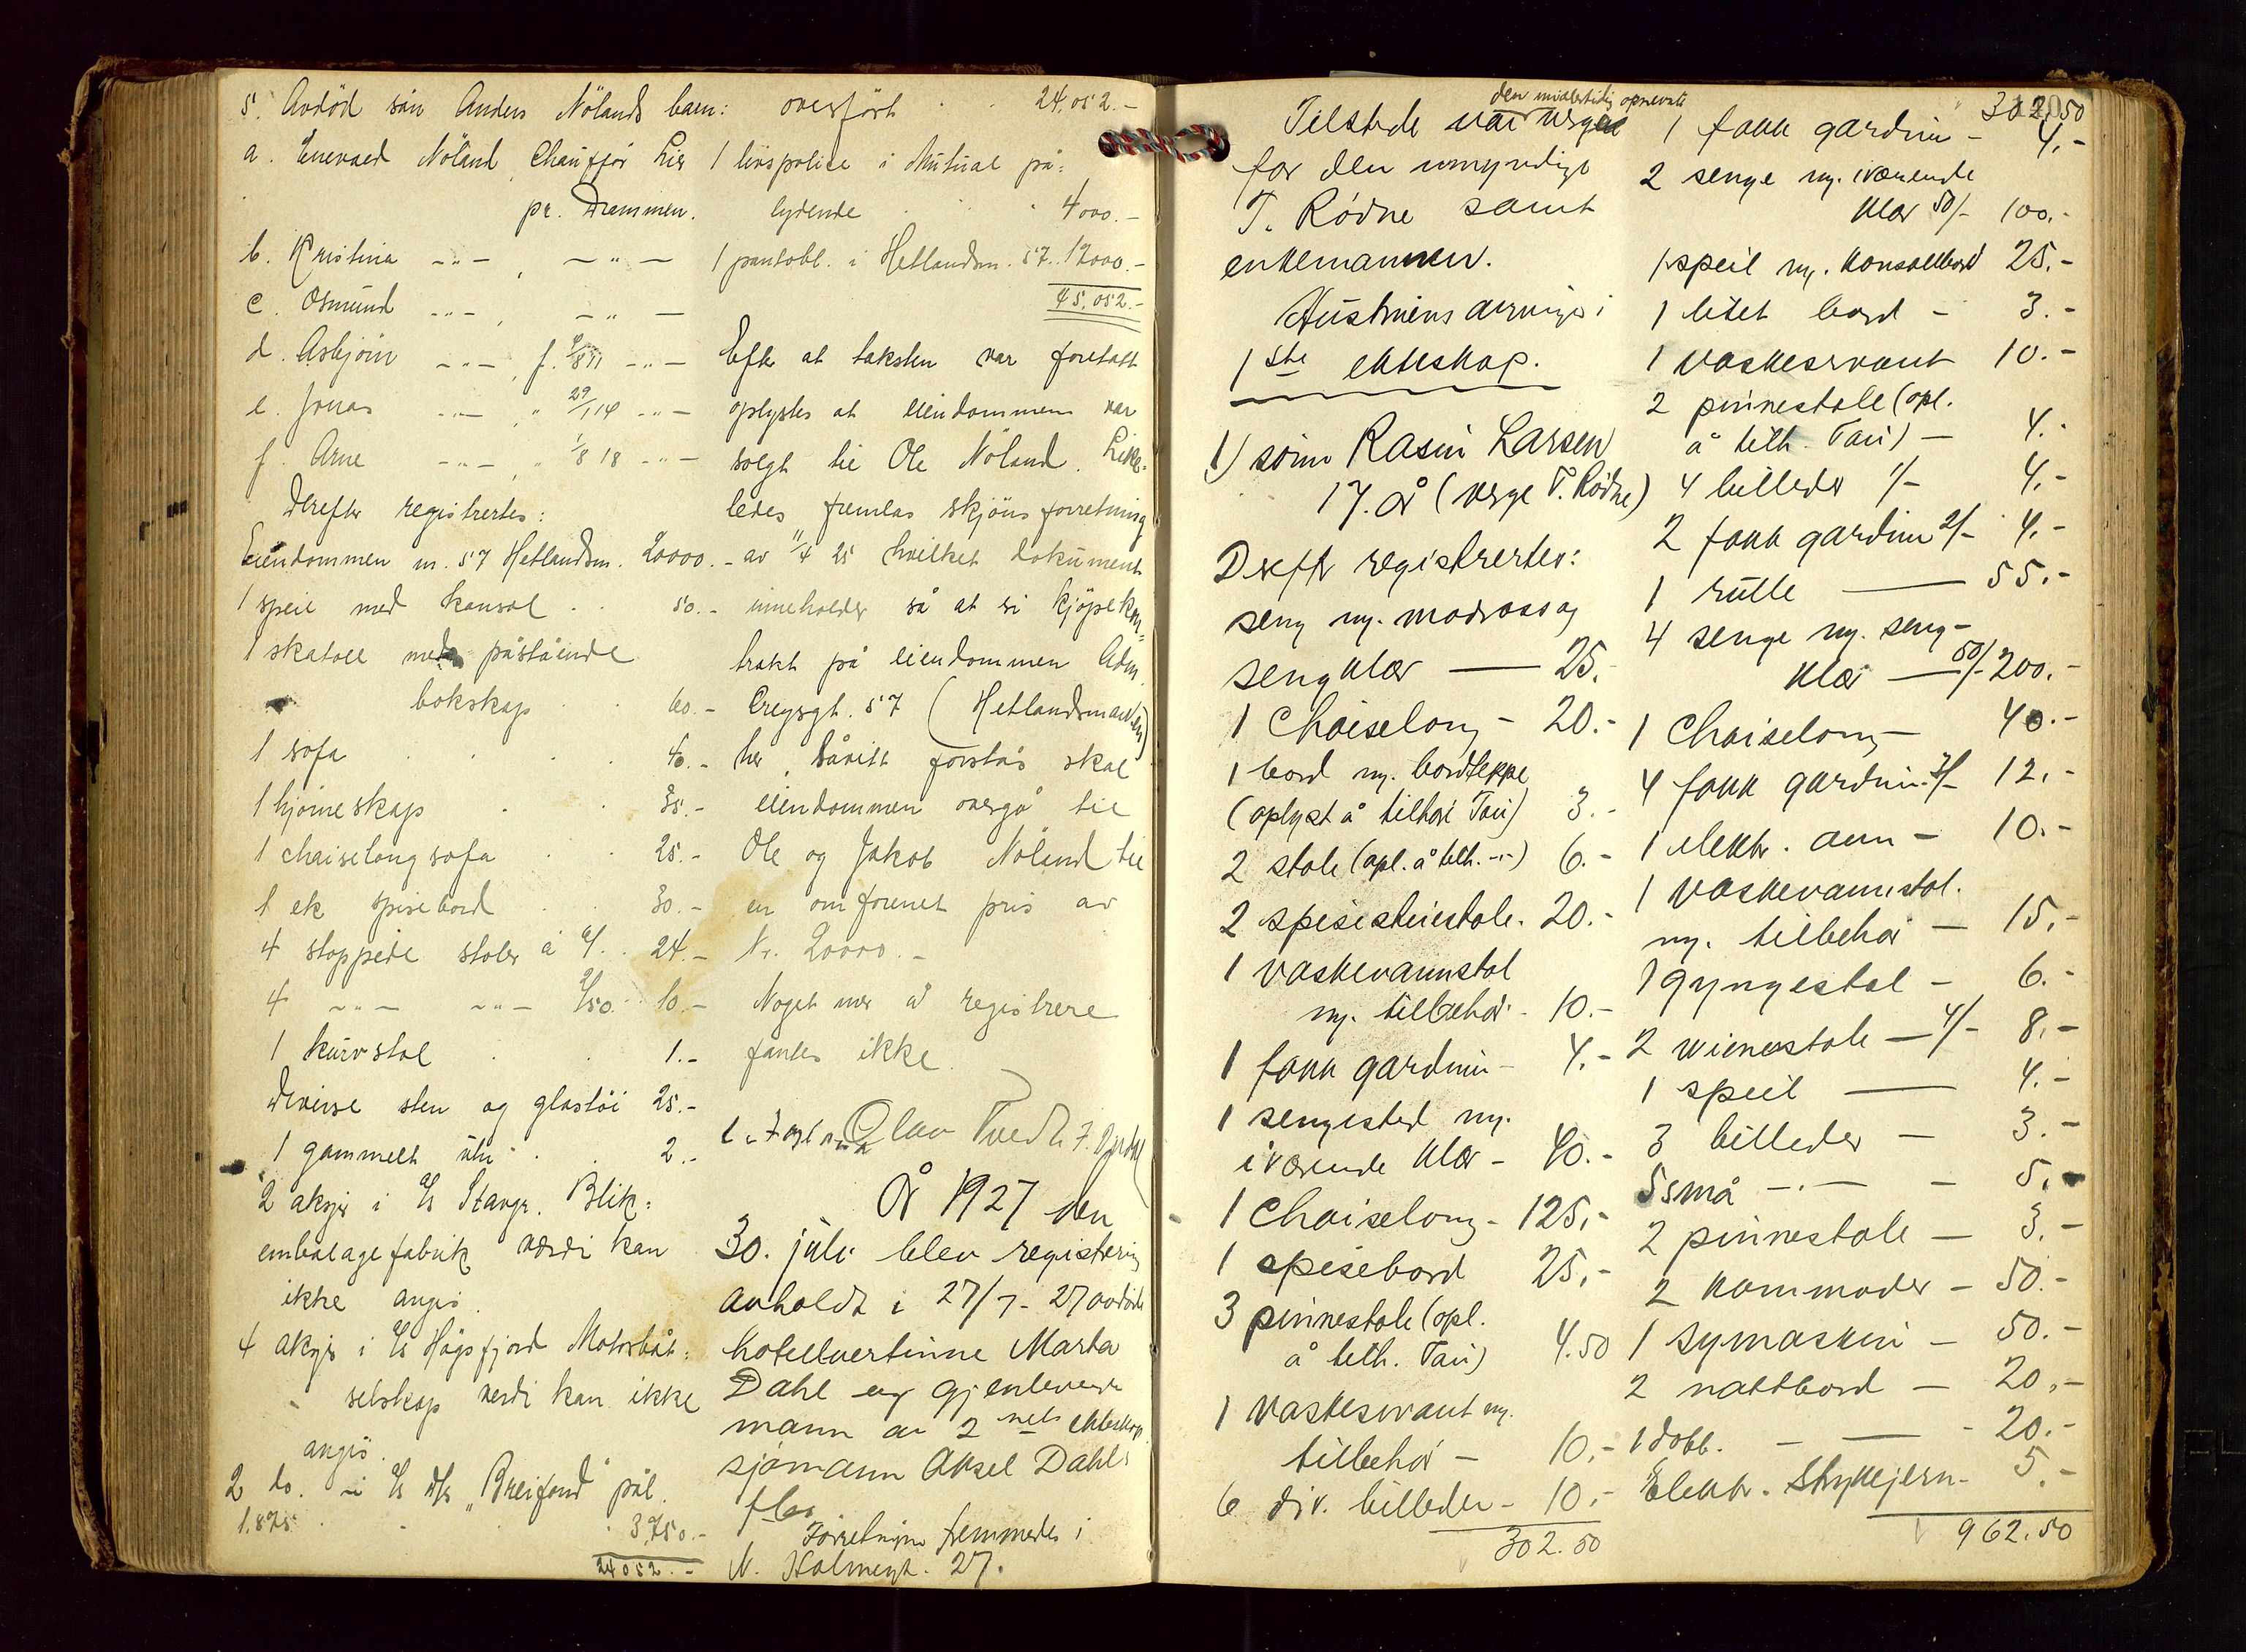 5. Avdöd sön Anders Nölands barn:
a. Enevald Nöland, Chaufför Lier
pr. Drammen.
b. Kristina -"- , -"-
c. Osmund -"- , -"-
d. Asbjörn -"- , f. 8/11 -"-
e. Jonas -"- " 29/1 14 -"-
f. Arne -"- , " 1/8 18 -"-
Derefter registrertes:
Eiendommen m. 57 Hetlandsm. 20000.-
1 speil med konsol . . 50.-
1 skatoll med påstående
bokskap . . 60.-
1 sofa . . . 40.-
1 hjörneskap . . 35.-
1 chaiselongsofa . . 25.-
1 ek spisebord . . 30.-
4 stoppede stoler à 6/. . 24.-
4 -"- -"- 2/50. . 10.-
1 kurvstol . . 1.-
Diverse sten og glastöi 25.-
1 gammelt uhr . . 2.-
2 aksjer i A/s Stavgr. Blik-
embalagefabrik verdi kan
ikke angis.
4 aksjer i A/s Högsfjord Motorbåt-
selskap verdi kan ikke
angis.
2 do. i A/s D/s "Breifond" pål.
1.875 . . . 3,750.-
24052.-
overfört . . 24,052.-
1 livspolice i Mutual på-
lydende . . . 4000.-
1 pantobl. i Hetlandsm. 57. 17000.-
45,052.-
Efter at taksten var foretatt
oplystes at eiendommen var
solgt til Ole Nöland. Like-
ledes fremlas skjönsforretning
av 11/4 25 hvilket dokument
inneholder så at si kjöpekon-
trakt på eiendommen Adm.
57 (Hetlandsmarken)
her, såvitt forstås skal
eiendommen overgå til
Ole og Jakob Nöland til
en omforenet pris av
Kr. 20000.-
Noget mer å registrere
fantes ikke.
Olav Tvedt
År 1927 den
30. juli blev registering
avholdt i 27/7-27 avdöde
hotellvertinne Marta
Dahl og gjenlevende
mann av 2net ekteskap
sjömann Aksel Dahls
fbo
Forretningen fremmedes i
N. Holmegt. 27.
den midlertidig opnevnte
Tilstede var verge
for den umyndige
T. Rödne samt
enkemannen.
Hustruens arvinger i
1ste ekteskap.
1) sönn Rasin Larsen
17. år (verge T. Rödne)
Derefter registrertes:
seng m. madrass og
sengklær — 25.-
1 Chaiselong - 20.-
1 bord m. bordteppe
(oplyst å tilhöre Tau) 3.-
2 stole (opl. å tilh. -"-) 6.-
2 spisestuestole. 20.-
1 vaskevannstol
m. tilbehör - 10.-
1 fakk gardin - 4.-
1 sengested m.
iværende klær - 40.-
1 Chaiselong - 125.-
1 spisebord 25.-
3 pinnestole (opl.
å tilh. Tau) 4.50
1 vaskeservant m.
tilbehör - 10.-
6 div. billeder - 10.-
302.50
302.50
1 fakk gardin - 4.-
2 senge m. iværende
klær 50/- 100.-
1 speil m. konsollbord 25.-
1 litet bord - 3.-
1 vaskeservant 10.-
2 pinnestole (opl.
å tilh. Tau) - 4.-
4 billeder 1/- 4.-
2 fakk gardin 2/- 4.-
1 rulle — 55.-
4 senge m. seng-
klær — 50/- 200.-
1 Chaiselong - 40.-
4 fakk gardin 3/- 12.-
1 elektr. ovn - 10.-
1 vaskevannstol.
m. tilbehör - 15.-
1 gyngestol - 6.-
2 wienerstole - 4/- 8.-
1 speil — 4.-
3 billeder - 3.-
5 små -"- - 5.-
2 pinnestole - 3.-
2 kommoder - 50.-
1 symaskin - 50.-
2 nattbord - 20.-
1 dobb. - — - 20.-
Elektr. Strykejern - 5.-
962.50